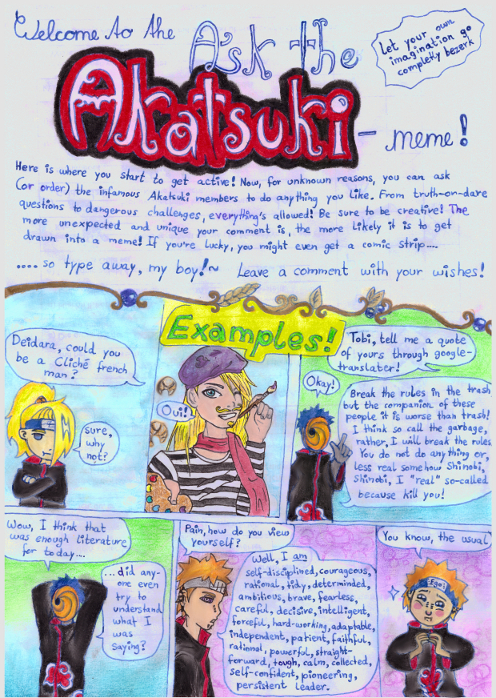 Welcome to the
Ask the
Akatsuki
-meme!
Let your own
imagination go
completly bezerk
Here is where you start to get active! Now, for unknown reasons, you can ask
(or order) the infamous Akatsuki members to do anything you like. From truth-or-dare
questions to dangerous challenges, everything's allowed! Be sure to be creative! The
more unexpected and unique your comment is, the more likely it is to get
drawn into a meme! If you're lucky, you might even get a comic strip....
....so type away, my boy!~ Leave a comment with your wishes!
Examples!
Deidara, could you
be a Cliché french
man?
sure,
why
not?
Oui!
Tobi, tell me a quote
of yours through google-
translater!
Okay!
Break the rules in the trash
but the companion of these
people it is worse than trash!
I think so call the garbage,
rather, I will break the rules
You do not do anything or,
less real somehow Shinobi,
Shinobi, I "real" so-called
because kill you!
Wow, I think that
was enough literature
for today....
...did any-
one even
try to
understand
what I
was
saying?
Pain, how do you view
yourself?
Well, I am
self-disciplined, courageous,
rational, tidy, determinded,
ambitious, brave, fearless,
careful, decisive, intelligent,
forceful, hard-working, adaptable,
independent, patient, faithful,
rational, powerful, straight-
forward, tough, calm, collected,
self-confident, pioneering,
persistent leader.
You know, the usual
Ego!